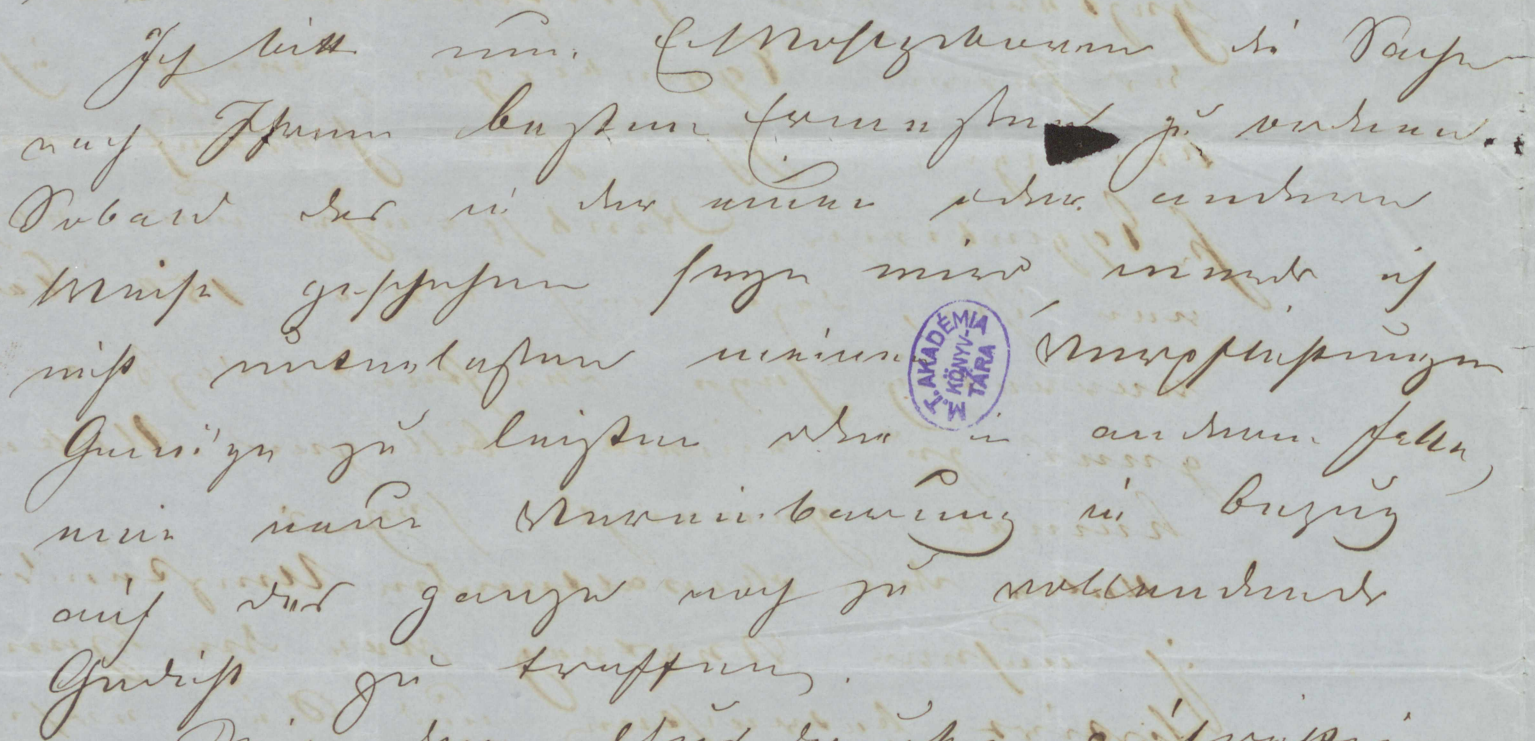 Ich bitte nun Ew Wohlgeboren die Sache
nach Ihrem besten Ermessen zu ordnen.
Sobald das in der einen oder anderen
Weise geschehen seyn wird werde ich
nicht unterlassen meinen Verpflichtungen
M. T. AKADÉMIA KÖNYVTÁRA
Genüge zu leisten oder in anderem Falle,
eine neue Vereinbarung in Bezug
auf das ganze noch zu vollendende
Gedicht zu treffen.